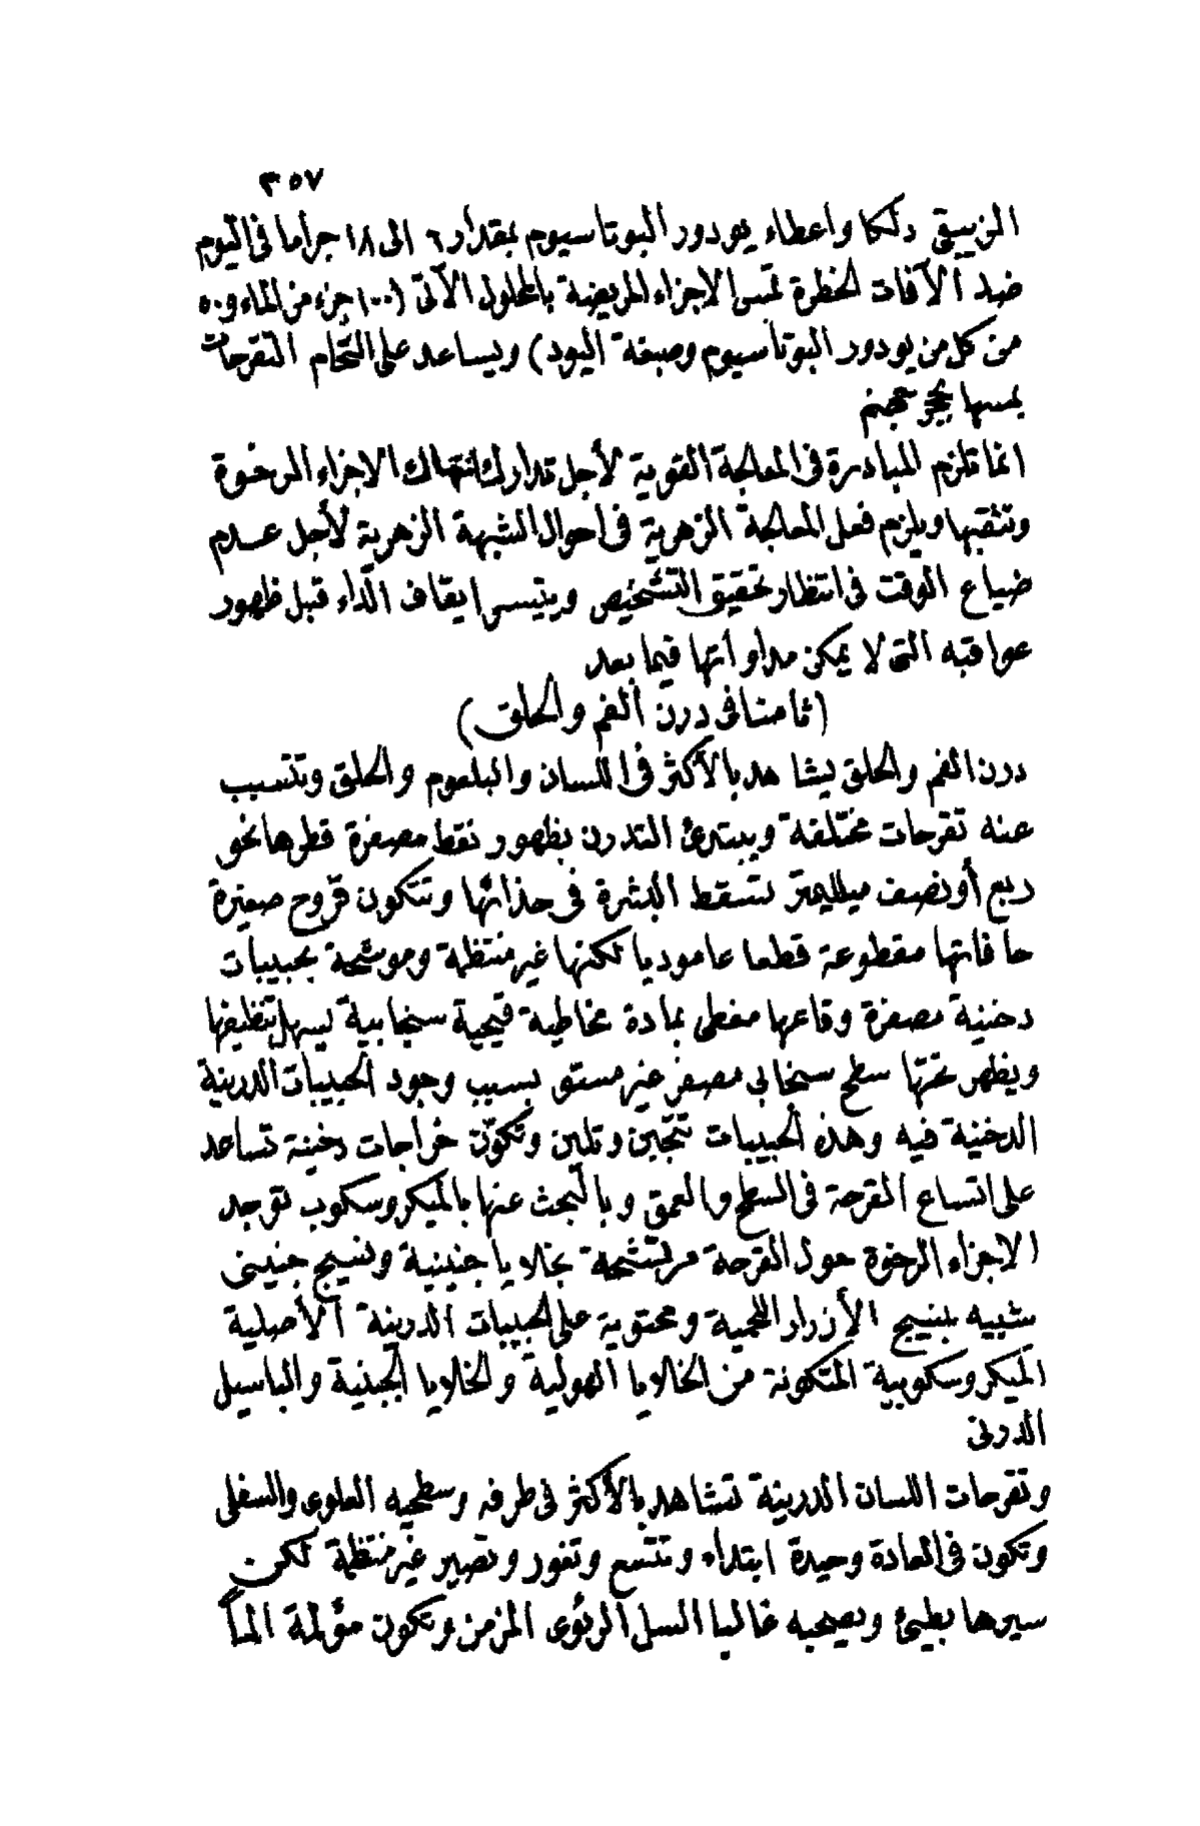 ٣٥٧
الزيبقي دلكا واعطاء يودور البوتاسيوم بمقدار ٦ الى ١٨ جراما في اليوم
ضد الآفات الخطرة تمس الاجزاء المريضة بالمحلول الآتى (١٠٠ جزء من الماء و ٥٠
من كل من يودور البوتاسيوم وصبغة اليود) ويساعد على التحام التقرحات
بمسها بحجر جهنم
انما تلزم المبادرة في المعالجة القوية لأجل تدارك انتهاك الاجزاء الرخوة
وتثقبها ويلزم فعل المعالجة الزهرية في احوال الشبهة الزهرية لأجل عدم
ضياع الوقت في انتظار تحقيق التشخيص ويتيسر ايقاف الداء قبل ظهور
عواقبه التى لا يمكن مداواتها فيما بعد
(ثامنا في درن الفم والحلق)
درن الفم والحلق يشاهد بالأكثر في اللسان والبلعوم والحلق وتتسبب
عنه تقرحات مختلفة ويبتدئ التدرن بظهور نقط مصفرة قطرها نحو
ربع أو نصف ميلليمتر تسقط البشرة في حذائها وتتكون قروح صغيرة
حافاتها مقطوعة قطعا عاموديا لكنها غير منتظمة وموشحة بحبيبات
دخنية مصفرة وقاعها مغطى بمادة مخاطية قيحية سنجابية يسهل تنظيفها
ويظهر تحتها سطح سنجابى مصفر غير مستو بسبب وجود الحبيبات الدرنية
الدخنية فيه وهذه الحبيبات تتجبن وتلين وتكون خراجات دخنية تساعد
على اتساع القرحة في السطح والعمق وبالبحث عنها بالميكروسكوب توجد
الاجزاء الرخوة حول القرحة مرتشحة بخلايا جنينية ونسيج جنينى
شبيه بنسيج الأزرار اللحمية ومحتوية على الحبيبات الدرنية الأصلية
الميكروسكوبية المتكونة من الخلايا المهولية والخلايا الجنينية والباسيل
الدرنى
وتقرحات اللسان الدرنية تشاهد بالأكثر في طرفه وسطحيه العلوى والسفلى
وتكون في العادة وحيدة ابتداء وتتسع وتغور وتصير غير منتظمة لكن
سيرها بطيئ ويصحبه غالبا السل الرئوى المزمن وتكون مؤلمة الماً